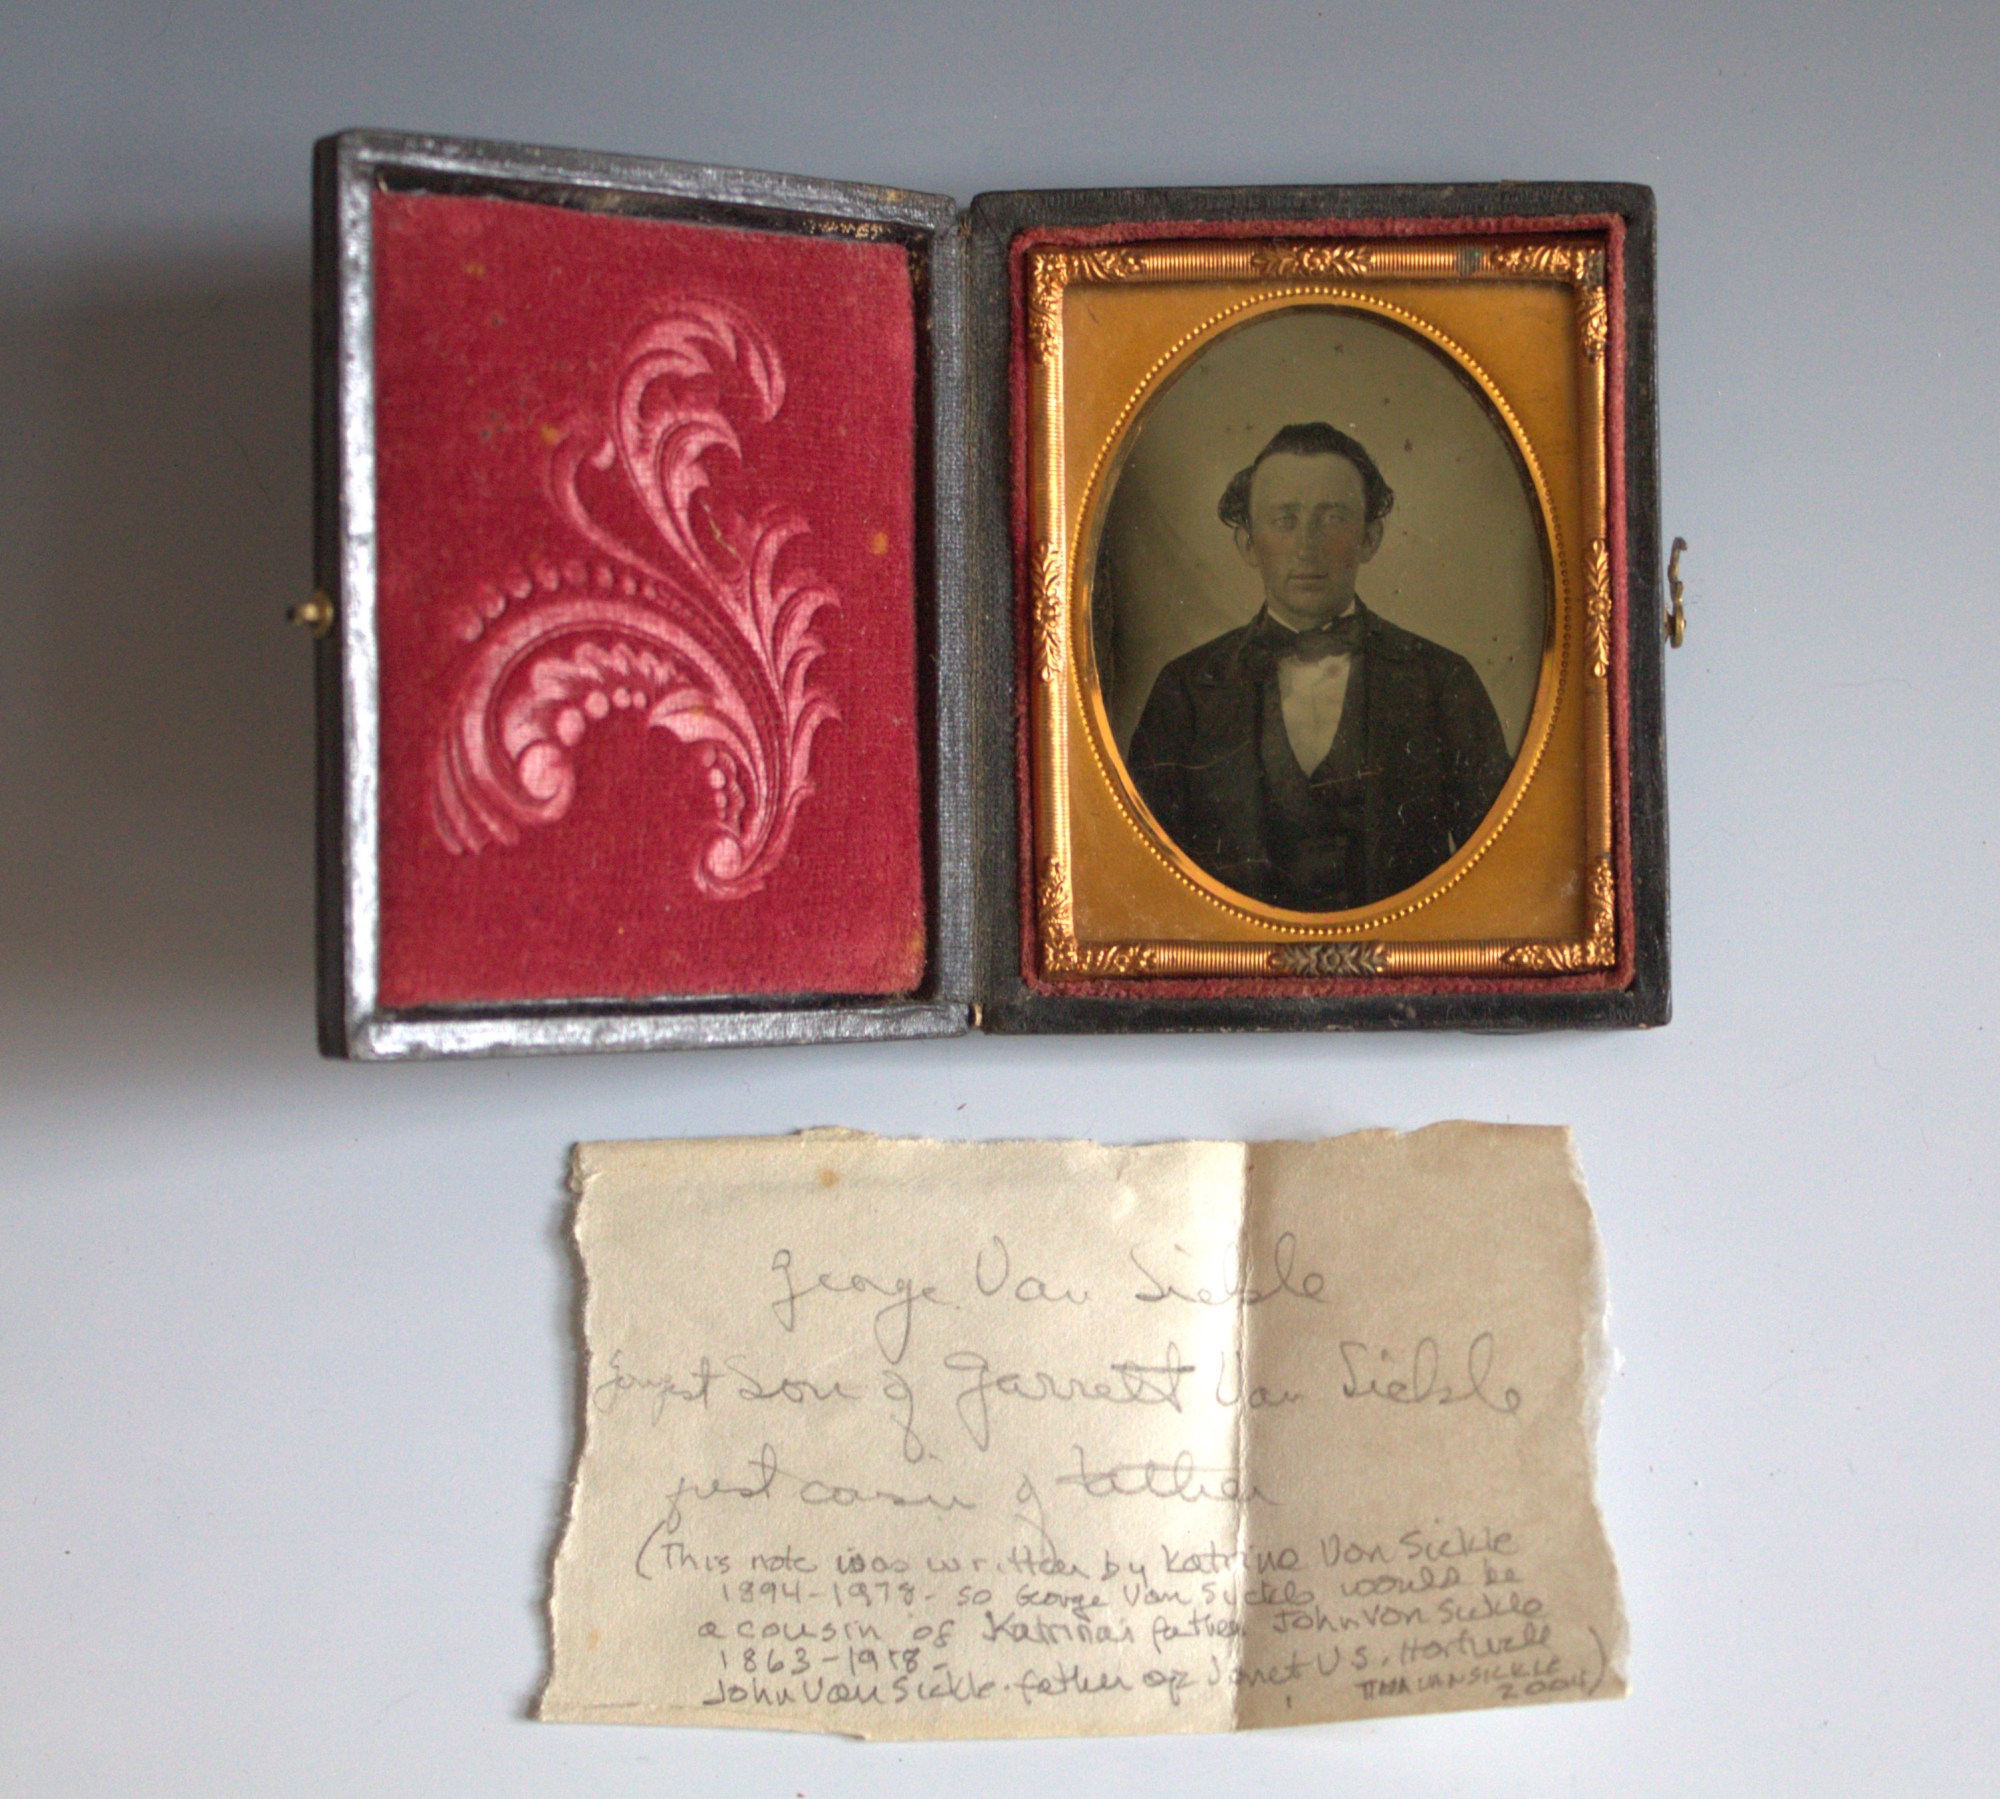 George Van Sickle
Youngest Son of Garrett Van Sickle
first cousin of father
(This note was written by Katrina Van Sickle
1894-1978- so George Van Sickle would be
a cousin of Katrina's father John Van Sickle
1863-1958-
John Van Sickle - father of Janet V S. Hartwell
VAN SICKLE
2004)